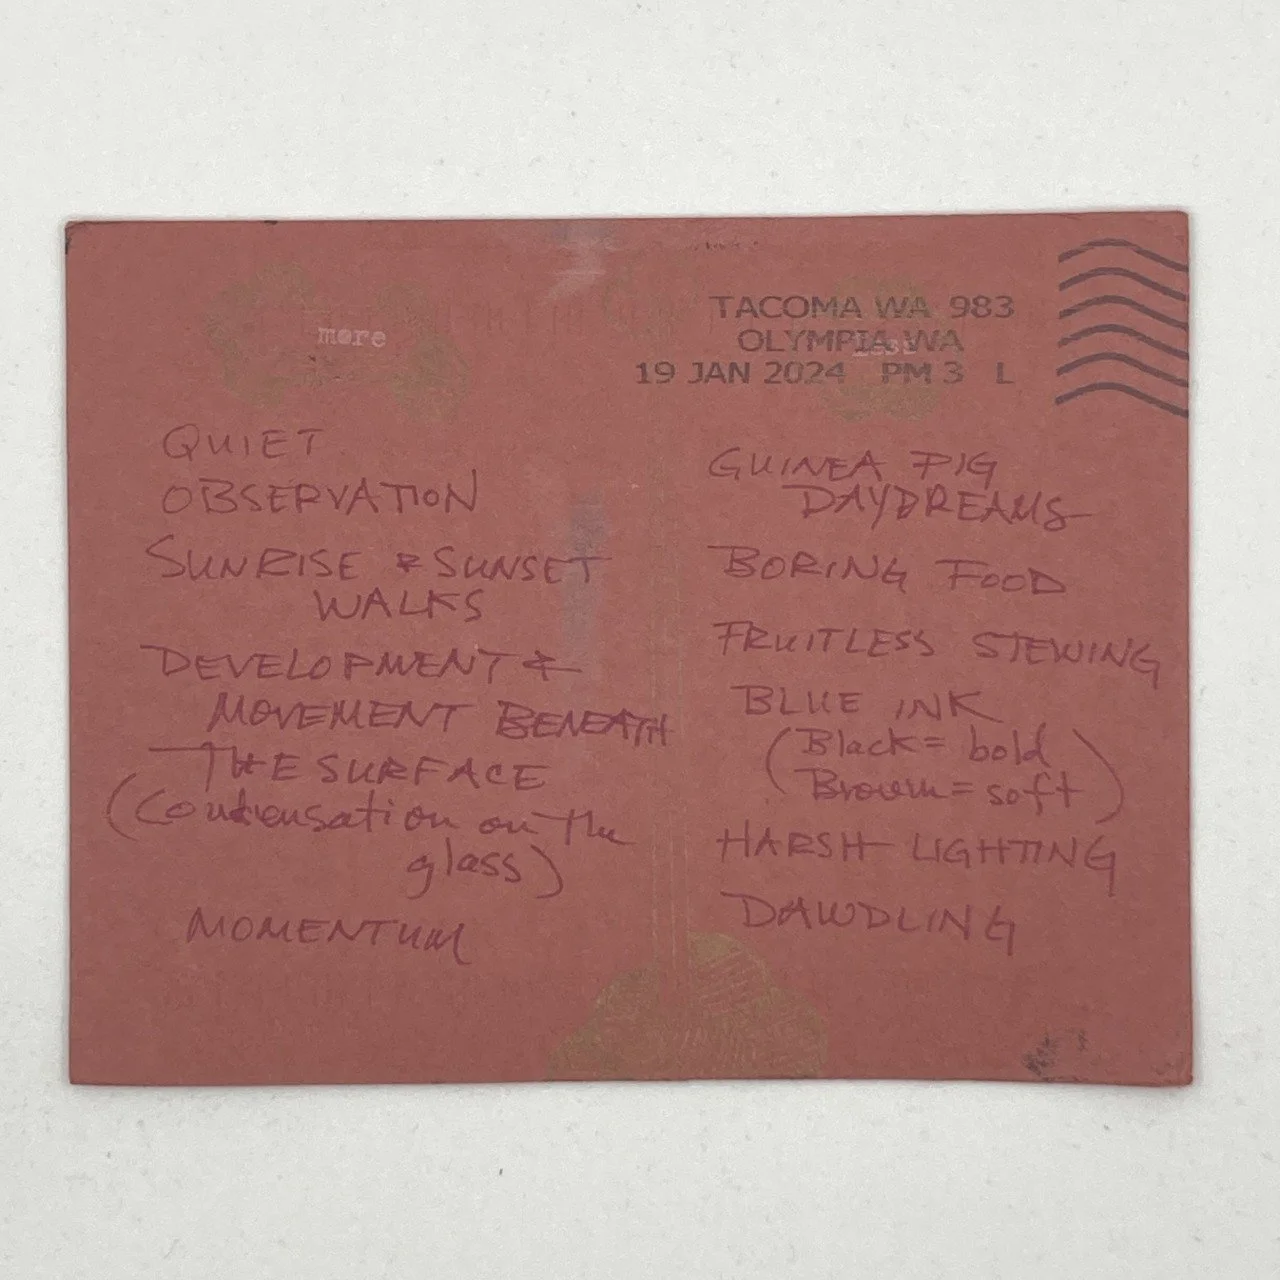 more
QUIET
OBSERVATION
SUNRISE & SUNSET
WALKS
DEVELOPMENT &
MOVEMENT BENEATH
THE SURFACE
(Condensation on the
glass)
MOMENTUM
TACOMA WA 983
OLYMPIA WA
19 JAN 2024 PM 3 L
less
GUINEA PIG
DAYDREAMS
BORING FOOD
FRUITLESS STEWING
BLUE INK
(Black = bold
Brown = soft)
HARSH LIGHTING
DAWDLING